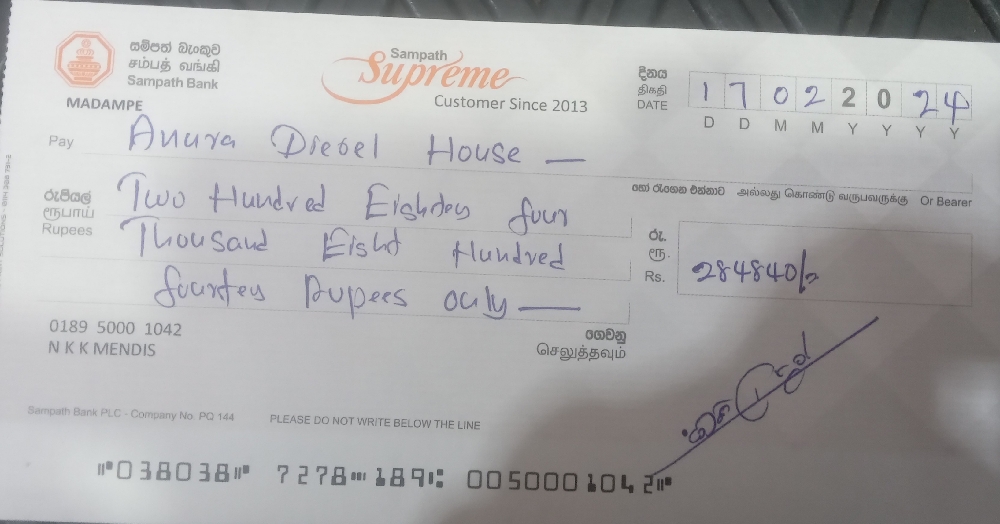 සම්පත් බැංකුව
சம்பத் வங்கி
Sampath Bank
MADAMPE
Sampath
Supreme
Customer Since 2013
දිනය
திகதி
DATE
1 7 0 2 2 0 2 4
D D M M Y Y Y Y
Pay Anura Diesel House —
හෝ රැගෙන එන්නාට அல்லது கொண்டு வருபவருக்கு Or Bearer
රුපියල්
ரூபாய்
Rupees
Two Hundred Eightey four
Thousand Eight Hundred
fourtey Rupees only —
රු.
ரூ.
Rs. 284840/=
0189 5000 1042
N K K MENDIS
ගෙවනු
செலுத்தவும்
Sampath Bank PLC - Company No. PQ 144 PLEASE DO NOT WRITE BELOW THE LINE
⑈038038⑈ 7278⑉189⑆ 0050001042⑈